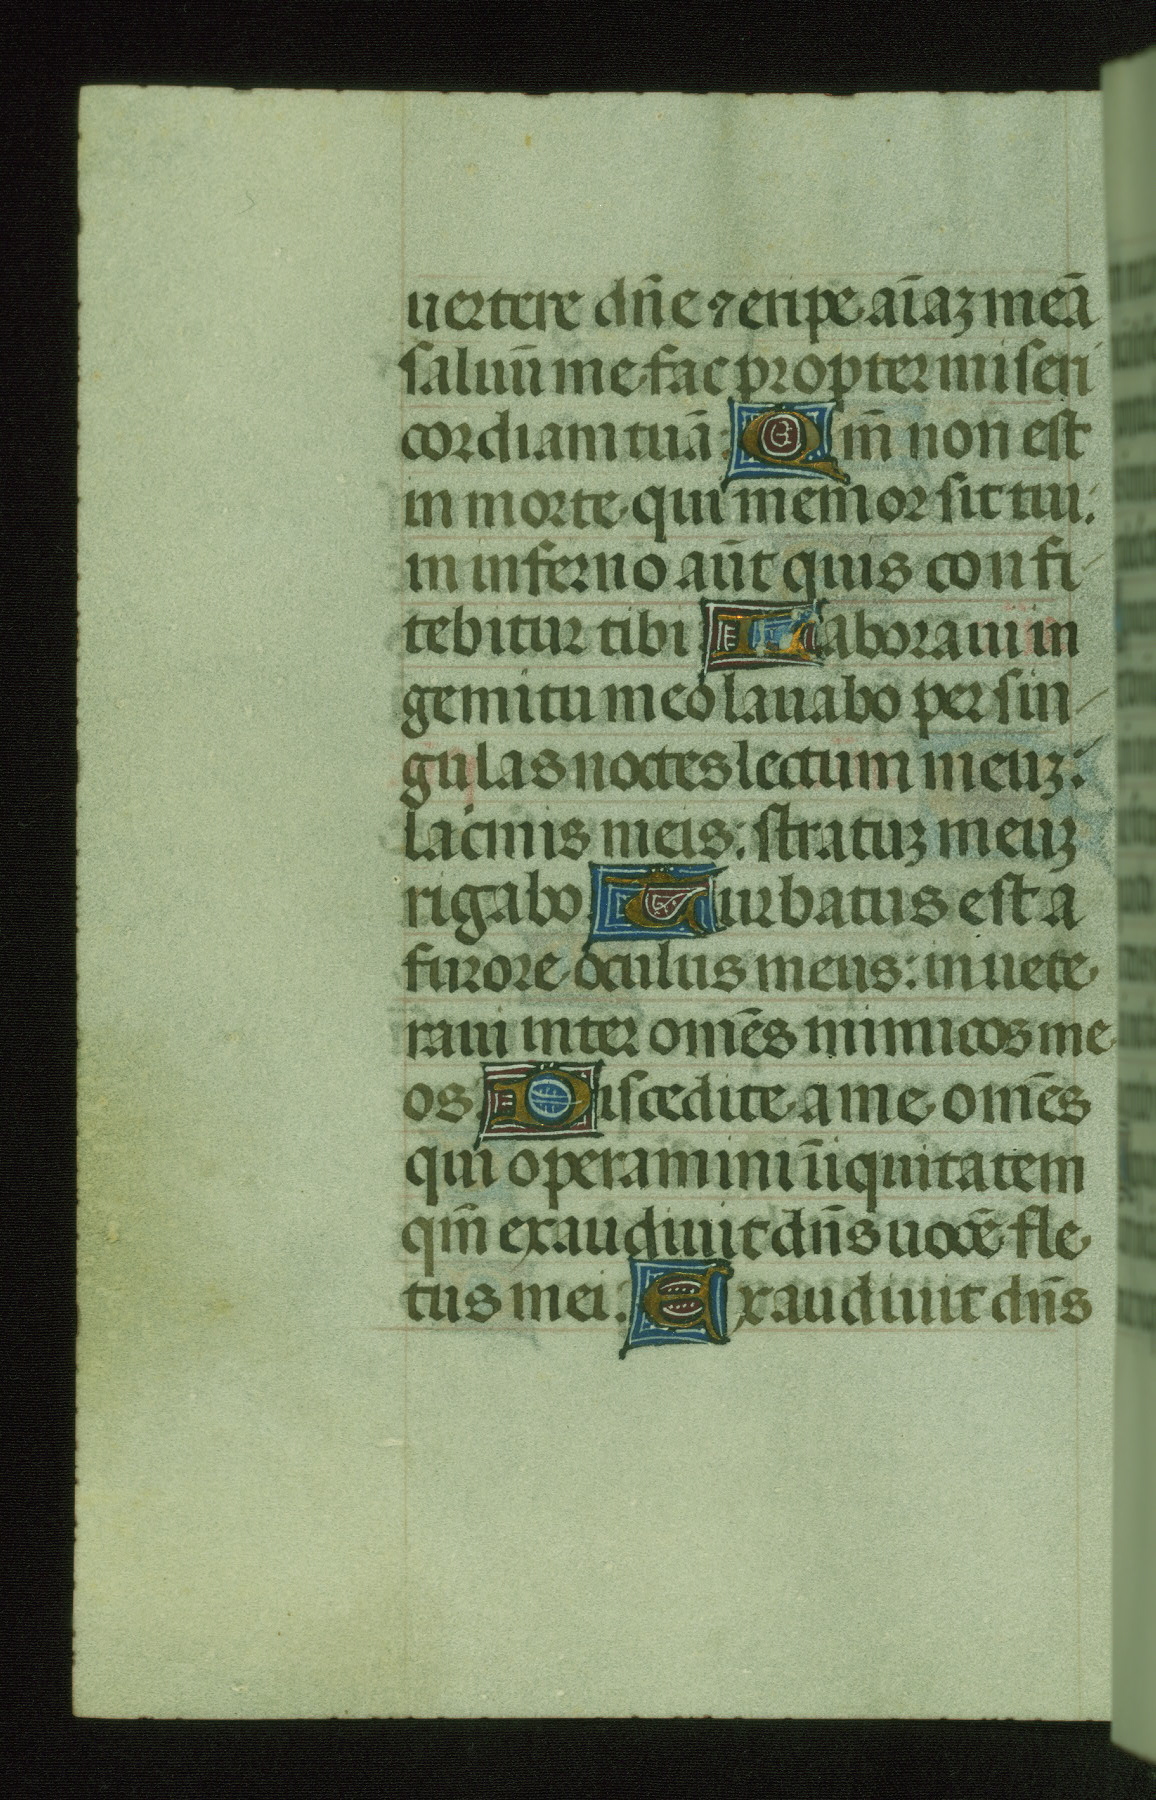 uertere dn̄e ⁊ eripe aīaꝫ meā
saluū me fac propter miseri
cordiam tuā: Qm̄ non est
in morte qui memor sit tui:
in inferno aūt quis confi
tebitur tibi Laboraui in
gemitu meo lauabo per sin
gulas noctes lectum meuꝫ:
lacrimis meis: stratuꝫ meuꝫ
rigabo Turbatus est a
furore oculus meus: inuete
raui inter om̄es inimicos me
os Discedite a me om̄es
qui operamini īiquitatem
qm̄ exaudiuit dn̄s uocē fle
tus mei. Exaudiuit dn̄s